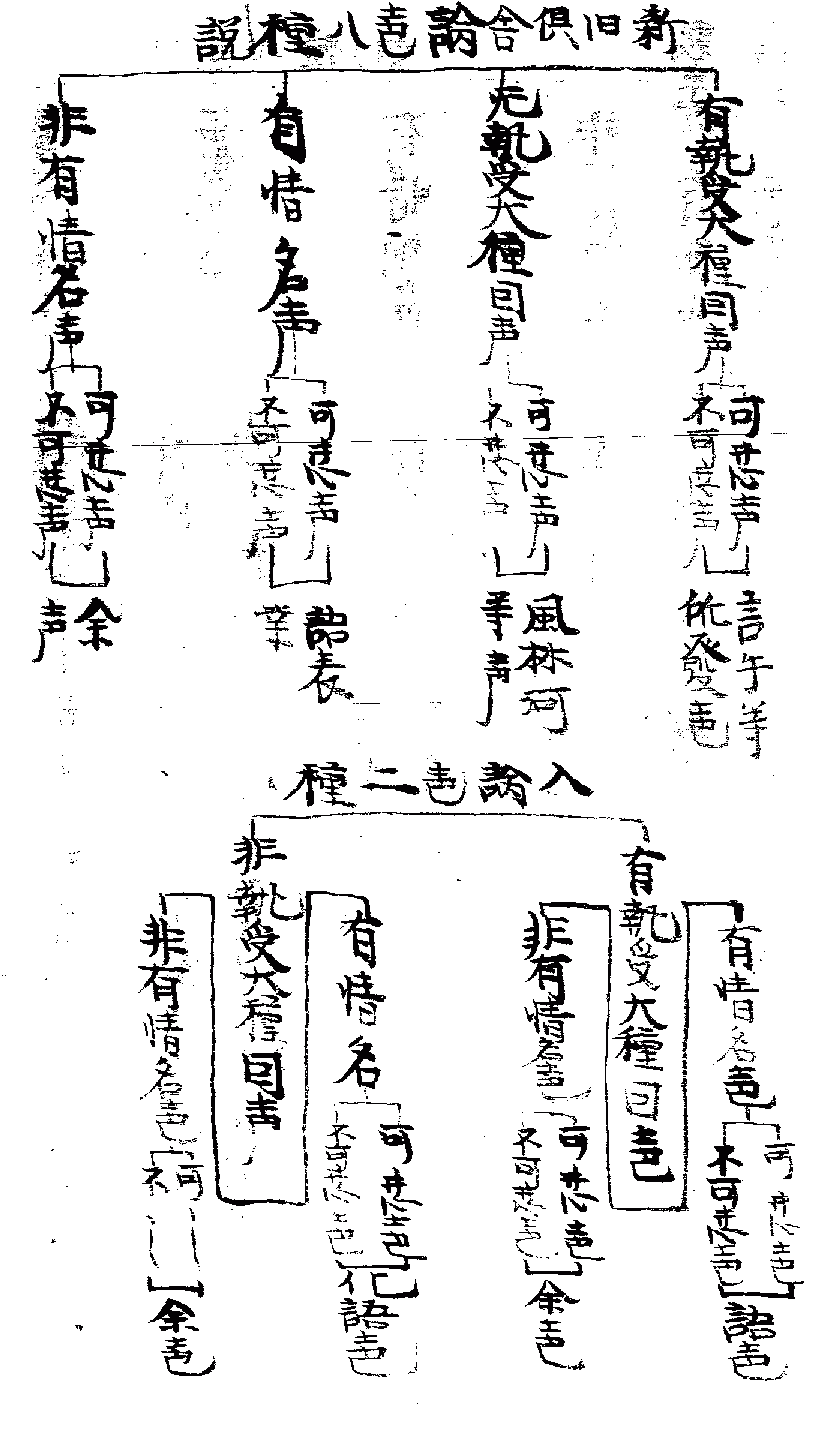 新旧倶舎論声八種説
有執受大種因声
可意声
不可意声
言手等
所發声
无執受大種因声
可意声
不意声
風林河
等声
有情名声
可意声
不可意声
語表
業
非有情名声
可意声
不可意声
余
声
入論声二種
有執受大種因声
有情名声
可意声
不可意声
語声
非有情名声
可意声
不可意声
余声
非執受大種因声
有情名
可意声
不可意声
化語声
非有情名声
可
不
余声